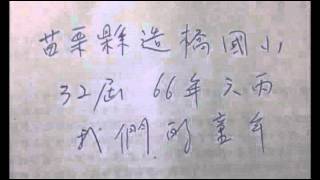 苗栗縣造橋國小
32屆 66年六丙
我們的童年